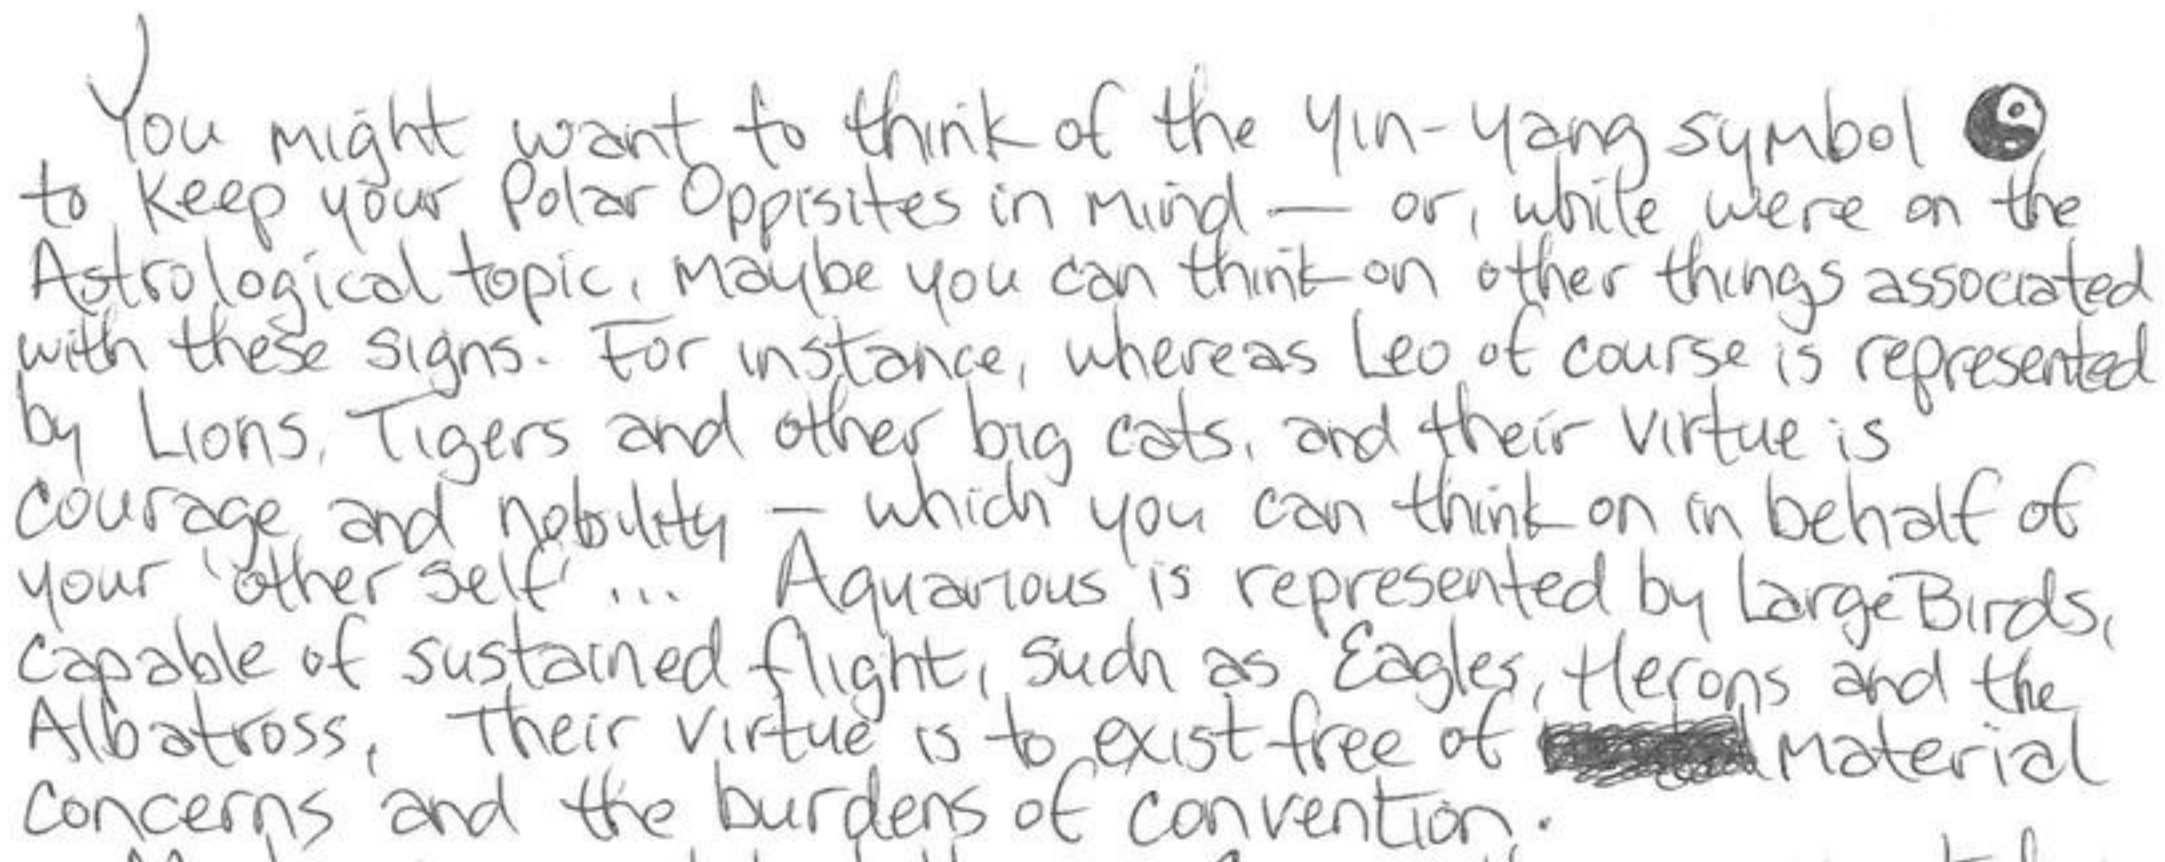 You might want to think of the Yin-Yang symbol ☯
to keep your Polar Oppisites in mind — or, while were on the
Astrological topic, maybe you can think on other things associated
with these signs. For instance, whereas Leo of course is represented
by Lions, Tigers and other big cats, and their virtue is
courage and nobility — which you can think on in behalf of
your 'other self'... Aquarious is represented by Large Birds,
capable of sustained flight, such as Eagles, Herons and the
Albatross, Their virtue is to exist free of material
concerns and the burdens of convention.